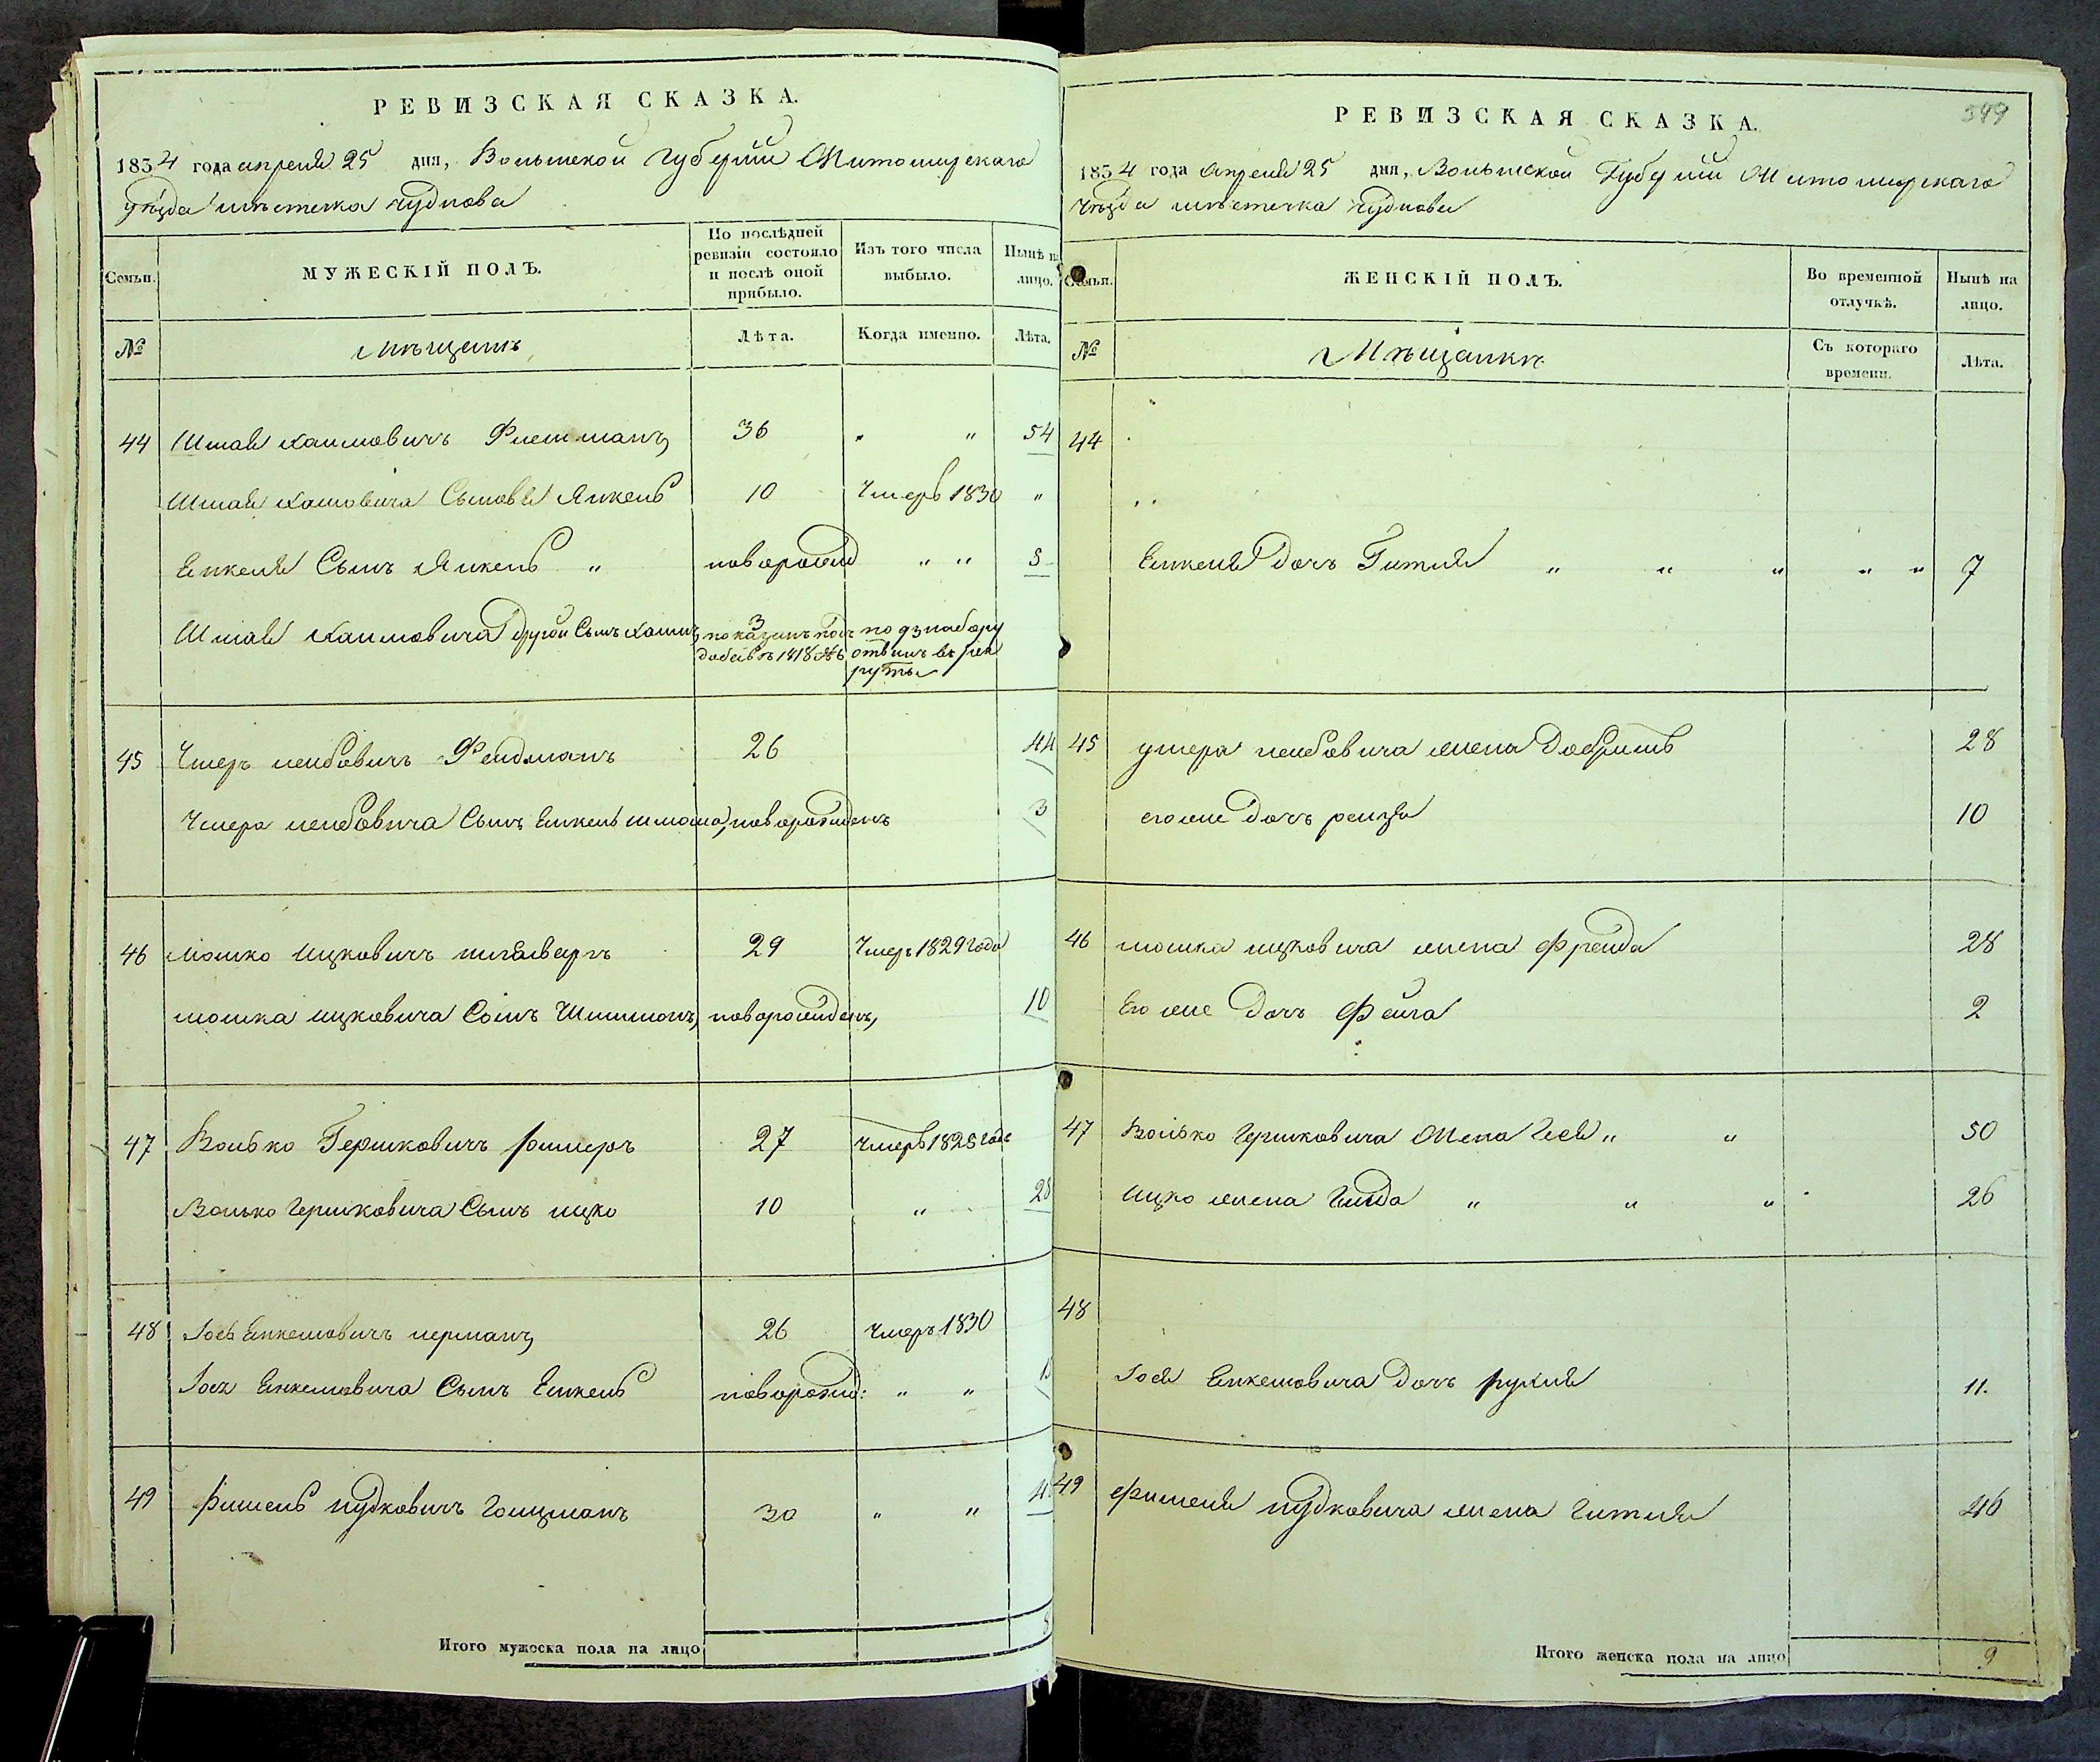 РЕВИЗСКАЯ СКАЗКА.
1834 года апреля 25 дня, Волынской губернiи Житомирскаго
уѣзда мѣстечка Чуднова
Семьи.
МУЖЕСКIЙ ПОЛЪ.
По послѣдней ревизiи состояло и послѣ оной прибыло.
Изъ того числа выбыло.
Нынѣ на лицо.
№
мѣщанъ
Лѣта.
Когда именно.
Лѣта.
44 Шмаи Хаимовичъ 36 " " 54
Шмаи Хаимовича Сынъ Янкель 10 Умеръ 1830 "
Янкеля Сынъ Янкель " новорожд " "
Шмаи Хаимовича другой Сынъ Хаимъ 3
показанъ подъ
№
по набору
отданъ въ рек
руты
45 Умеръ Лейбовичъ Фельдманъ 26 44
Умера Лейбовича Сынъ Янкель новорожденъ 3
46 Мошко Ицковичъ 29 Умеръ 1829 года
Мошка Ицковича Сынъ новорожденъ, 10
47 Волько Гершковичъ 27 Умеръ 1828 года
Волько Гершковича Сынъ Ицко 10 " 28
48 Iось Янкелювичъ 26 Умеръ 1830
Iося Енкелювича Сынъ Енкель новорожд: " "
49 Фишель Гольцманъ 30 " "
Итого мужеска пола на лицо
549
РЕВИЗСКАЯ СКАЗКА.
1834 года апреля 25 дня, Волынской Губернiи Житомирскаго
уѣзда мѣстечка Чуднова
Семьи.
ЖЕНСКIЙ ПОЛЪ.
Во временной отлучкѣ.
Нынѣ на лицо.
№
Мѣщанки
Съ котораго времени.
Лѣта.
44
Енкеля Дочь Гитля " " " " " 7
45 Умера Лейбовича жена 28
его же Дочь Рейзя 10
46 Мошка Ицковича жена Фрейда 28
Его же Дочь Фейга 2
47 Волько Гершковича Жена " " 50
Ицко жена " " " 26
48
Iося Енкелювича Дочь Рухля 11.
49 Фишеля жена Гитля 46
Итого женска пола на лицо 9